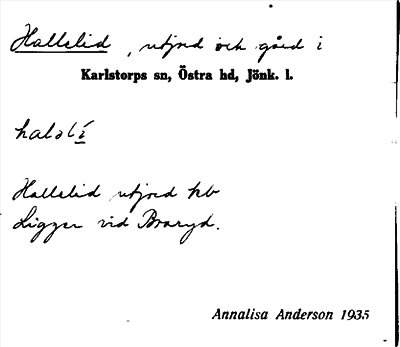 Hallelid, utjord och gård i
Karlstorps sn, Östra hd, Jönk. l.
Hallelid utjord kb
Ligger vid Braryd.
Annalisa Anderson 1935